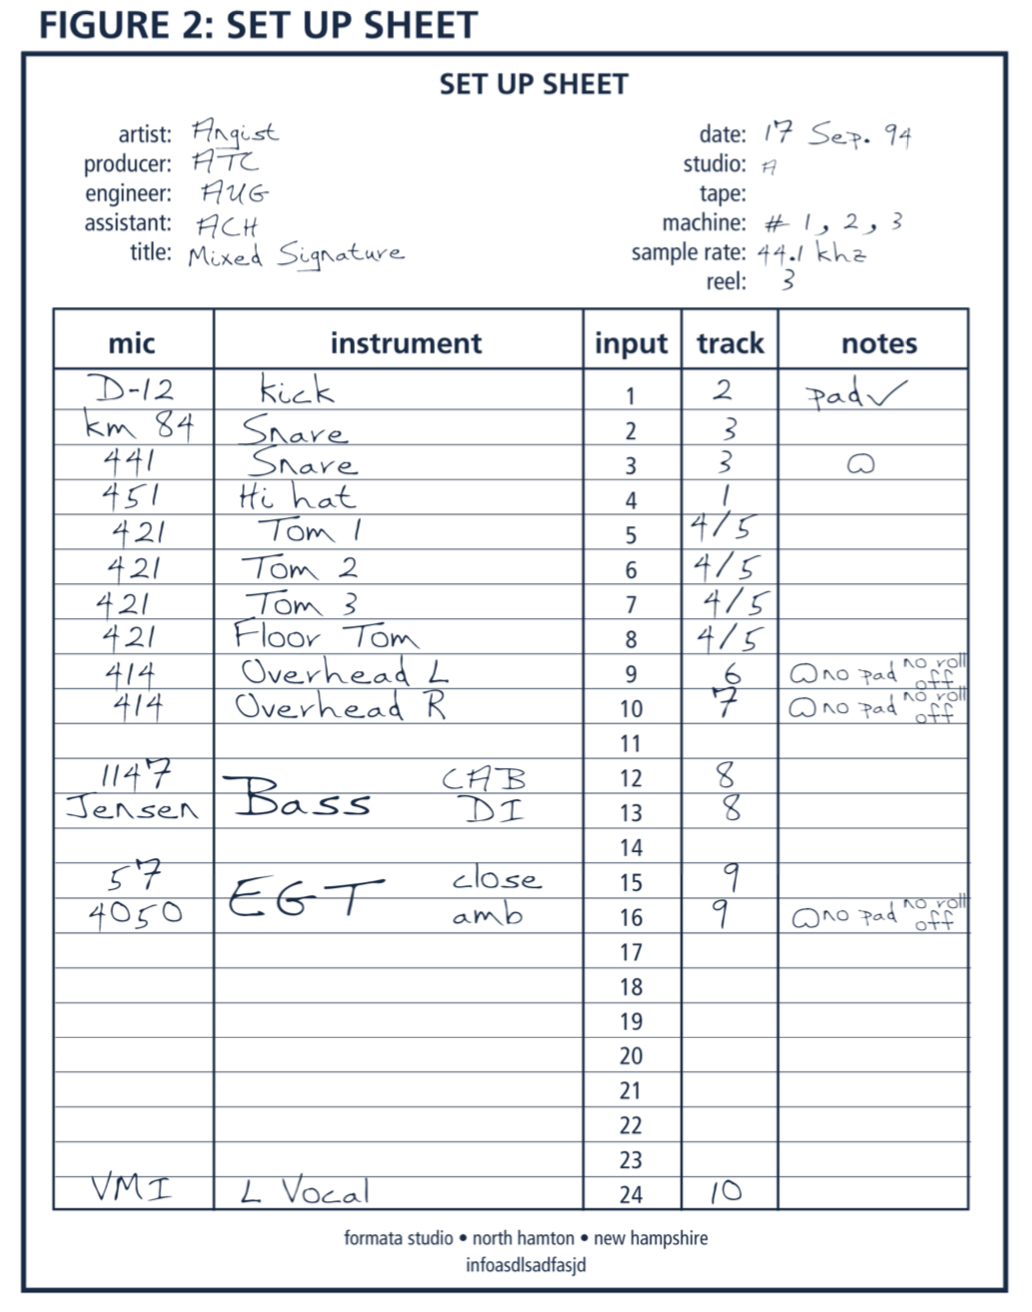 FIGURE 2: SET UP SHEET
SET UP SHEET
artist: Angist
producer: ATC
engineer: AUG
assistant: ACH
title: Mixed Signature
date: 17 Sep. 94
studio: A
tape:
machine: # 1, 2, 3
sample rate: 44.1 khz
reel: 3
mic instrument input track notes
D-12 kick 1 2 pad✓
km 84 Snare 2 3
441 Snare 3 3
451 Hi hat 4 1
421 Tom 1 5 4/5
421 Tom 2 6 4/5
421 Tom 3 7 4/5
421 Floor Tom 8 4/5
414 Overhead L 9 6 no pad no roll off
414 Overhead R 10 7 no pad no roll off
11
1147 Bass CAB 12 8
Jensen DI 13 8
14
57 EGT close 15 9
4050 amb 16 9 no pad no roll off
17
18
19
20
21
22
23
VMI L Vocal 24 10
formata studio • north hamton • new hampshire
infoasdlsadfasjd